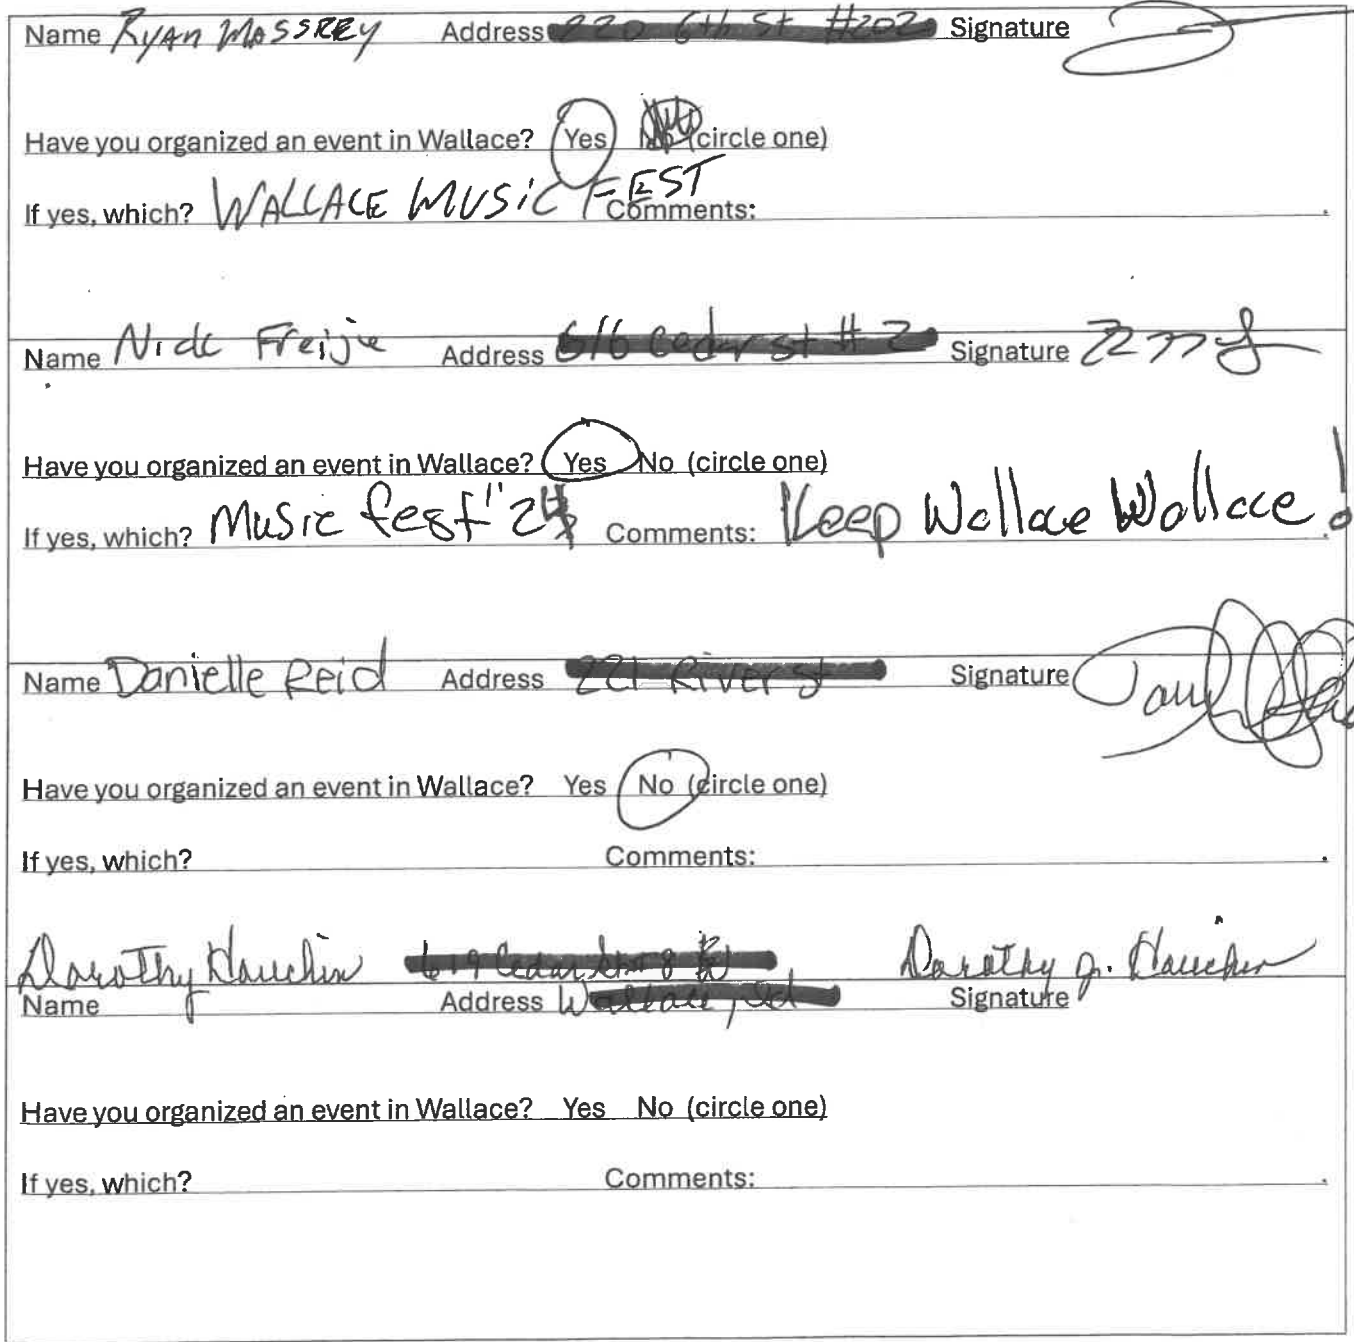 Name Ryan Massrey Address Signature
Have you organized an event in Wallace? Yes No (circle one)
If yes, which? WALLACE MUSIC FEST Comments:
Name Nick Freije Address Signature
Have you organized an event in Wallace? Yes No (circle one)
If yes, which? Music fest '24 Comments: Keep Wallace Wallace!
Name Danielle Reid Address Signature
Have you organized an event in Wallace? Yes No (circle one)
If yes, which? Comments:
Dorothy Dorothy J.
Name Address Signature
Have you organized an event in Wallace? Yes No (circle one)
If yes, which? Comments: